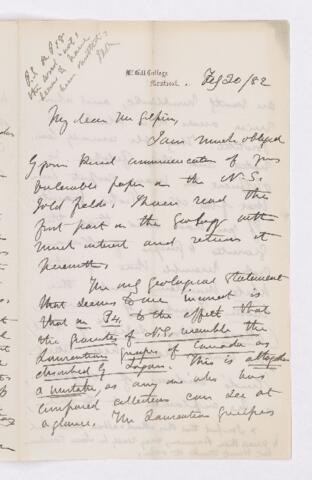 McGill College
Montreal. Feb 20/82
My dear Mr Gilpin,
I am much obliged
by your kind communication of your
valuable paper on the N.S.
Gold fields. I have read the
first part on the Geology with
much interest and return it
herewith.
The only Geological statement
that seems to me incorrect is
that on P4, to the effect that
the granites of N.S. resemble the
Laurentian gneisses of Canada as
described by Logan. This is altogether
a mistake as any one who has
compared collections can see at
a glance. The Laurentian gneisses